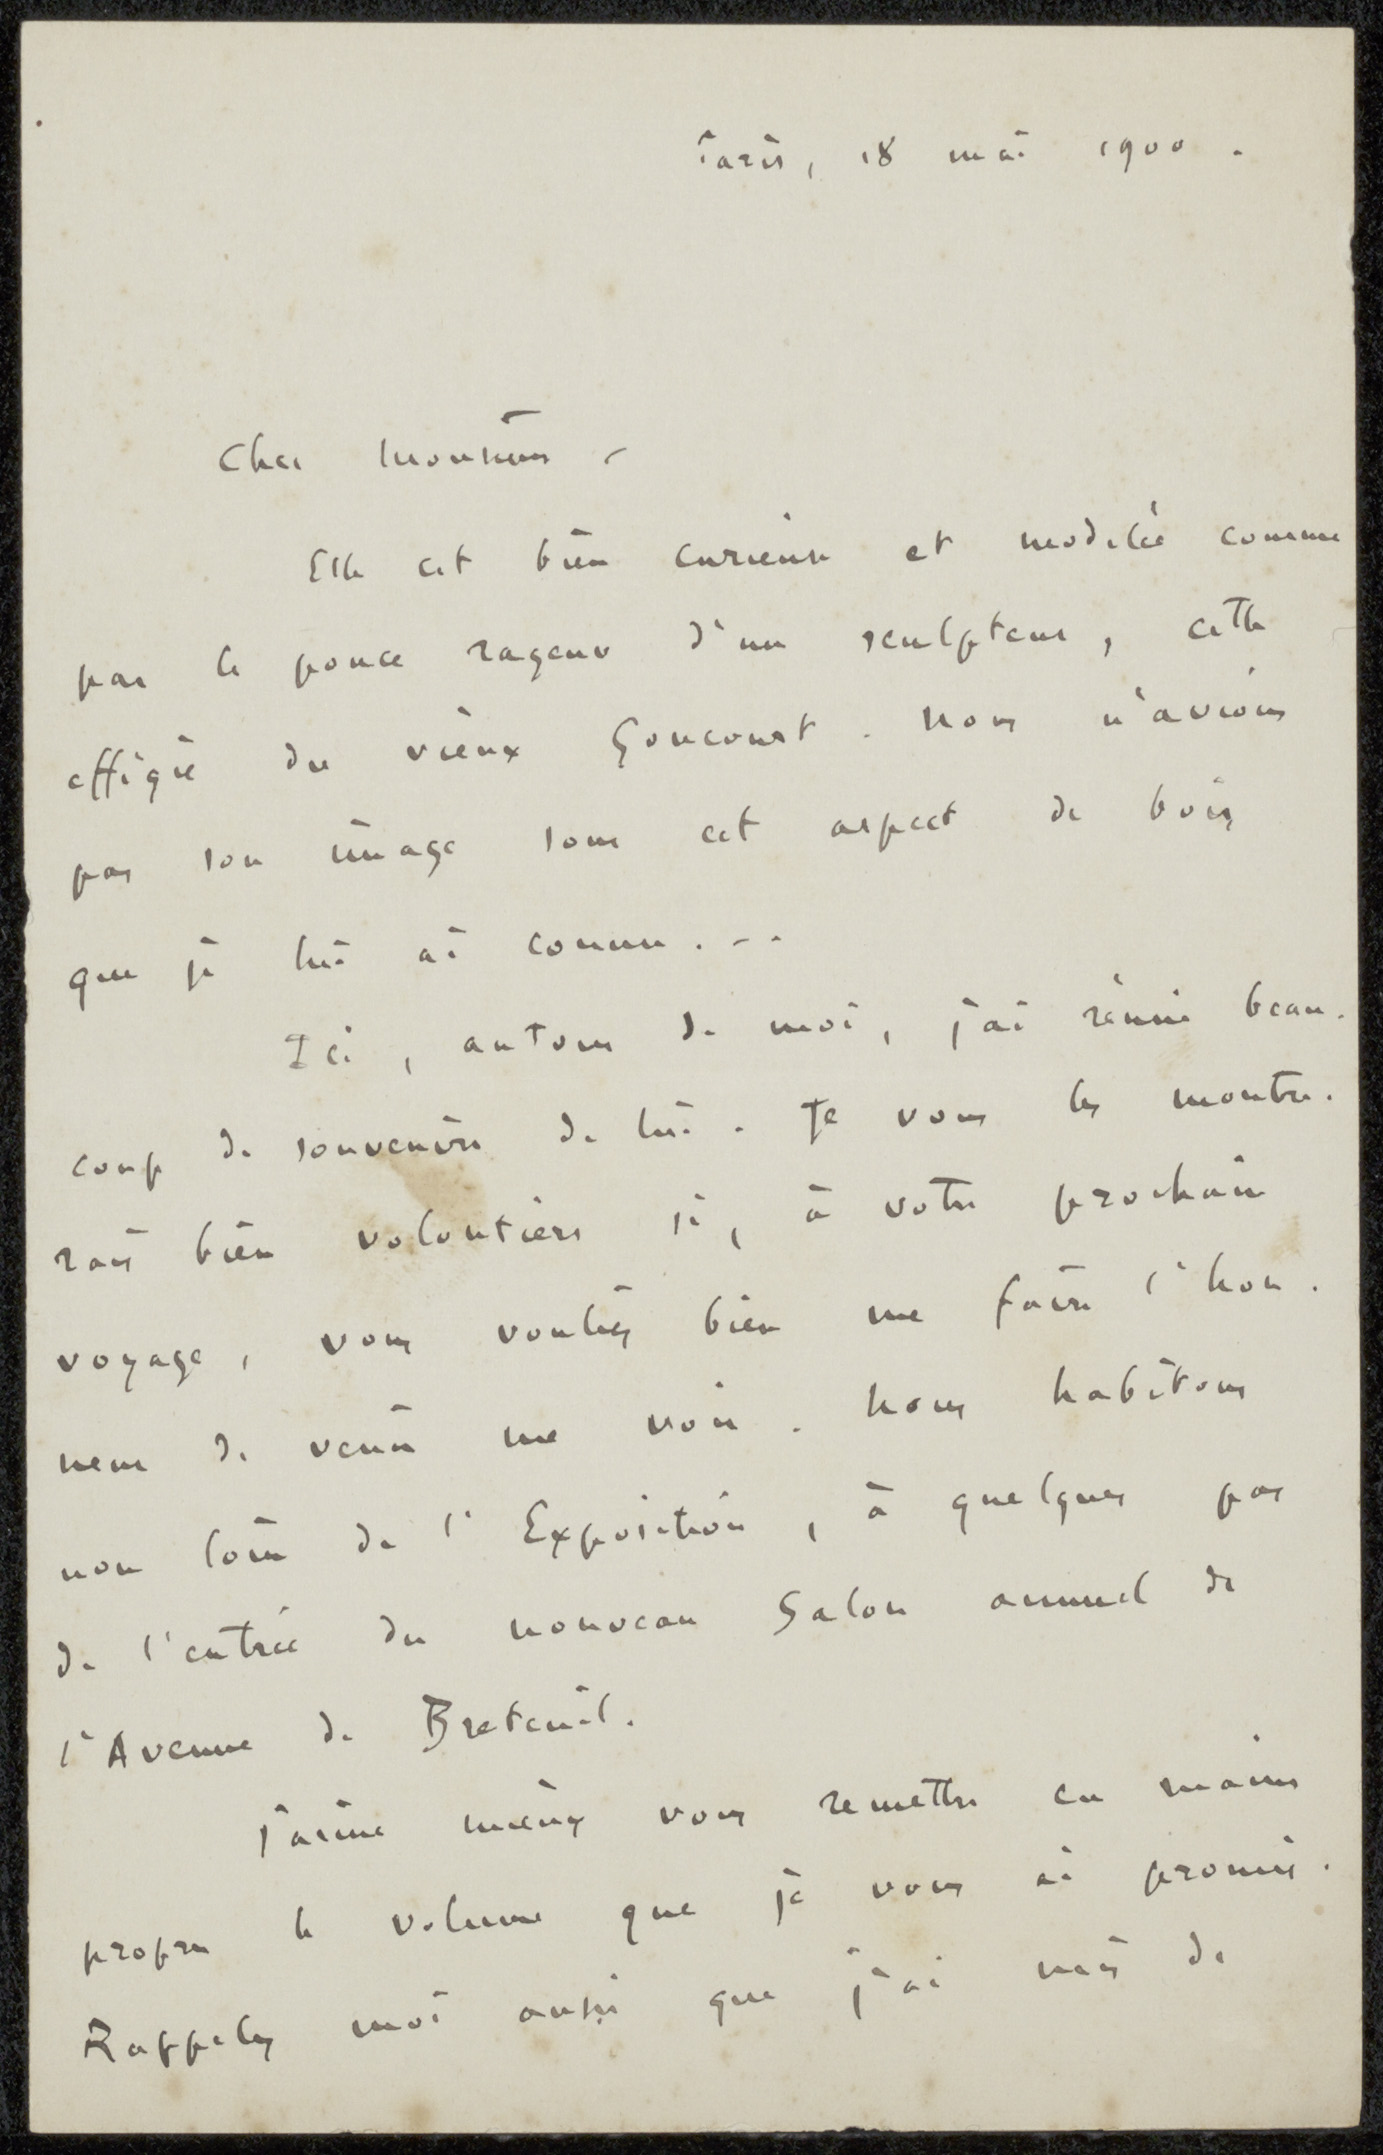 Paris, 18 mai 1900.
Cher Monsieur –
Elle est bien curieuse et modelée comme
par le pouce rageur d'un sculpteur, cette
effigie du vieux Goncourt. Nous n'avions
pas son image sous cet aspect de bois
que je lui ai connu...
Ici, autour de moi, j'ai réuni beau-
coup de souvenirs de lui. Je vous les montre-
rais bien volontiers si, à votre prochain
voyage, vous vouliez bien me faire l'hon-
neur de venir me voir. Nous habitons
non loin de l'Exposition, à quelques pas
de l'entrée du nouveau Salon annuel de
l'Avenue de Breteuil.
J'aime mieux vous remettre en mains
propres le volume que je vous ai promis.
Rappelez moi aussi que j'ai mis de